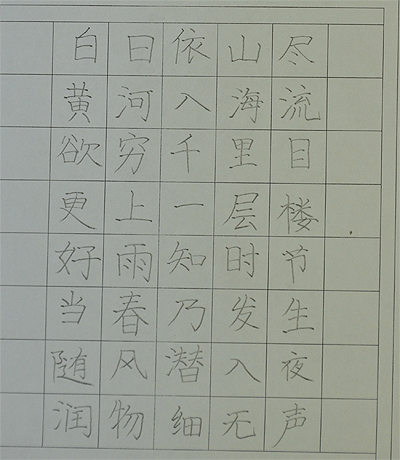 白日依山尽
黄河入海流
欲穷千里目
更上一层楼
好雨知时节
当春乃发生
随风潜入夜
润物细无声